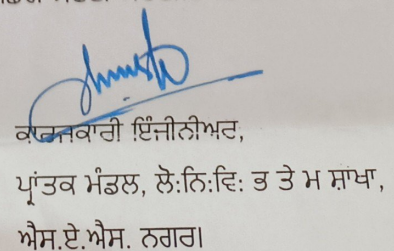 ਕਾਰਜਕਾਰੀ ਇੰਜੀਨੀਅਰ,
ਪ੍ਰਾਂਤਕ ਮੰਡਲ, ਲੋ:ਨਿ:ਵਿ: ਭ ਤੇ ਮ ਸ਼ਾਂਖਾ,
ਐਸ.ਏ.ਐਸ. ਨਗਰ।